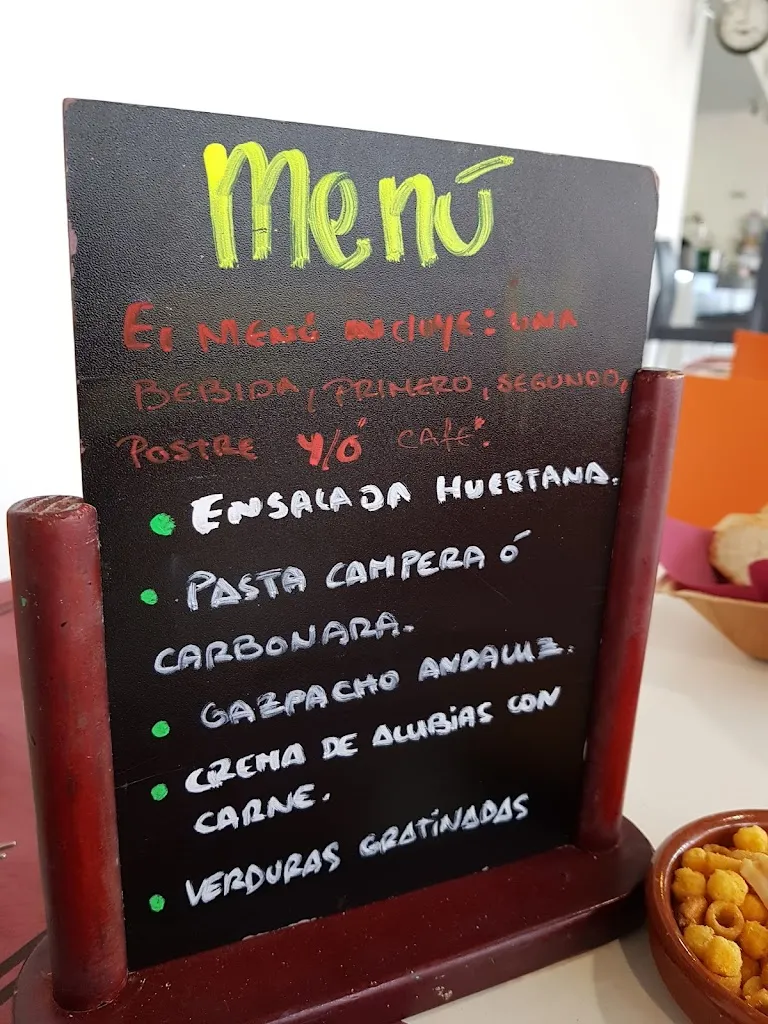 Menú
El MENÚ iNCluyE: UNA
BEBIDA, PRIMERO, SEGUNDO,
POSTRE Y/Ó CAFÉ.
• ENSALADA HUERTANA.
• PASTA CAMPERA Ó
CARBONARA.
• GAZPACHO ANDALUZ.
• CREMA DE ALUBIAS CON
CARNE.
• VERDURAS GRATINADAS